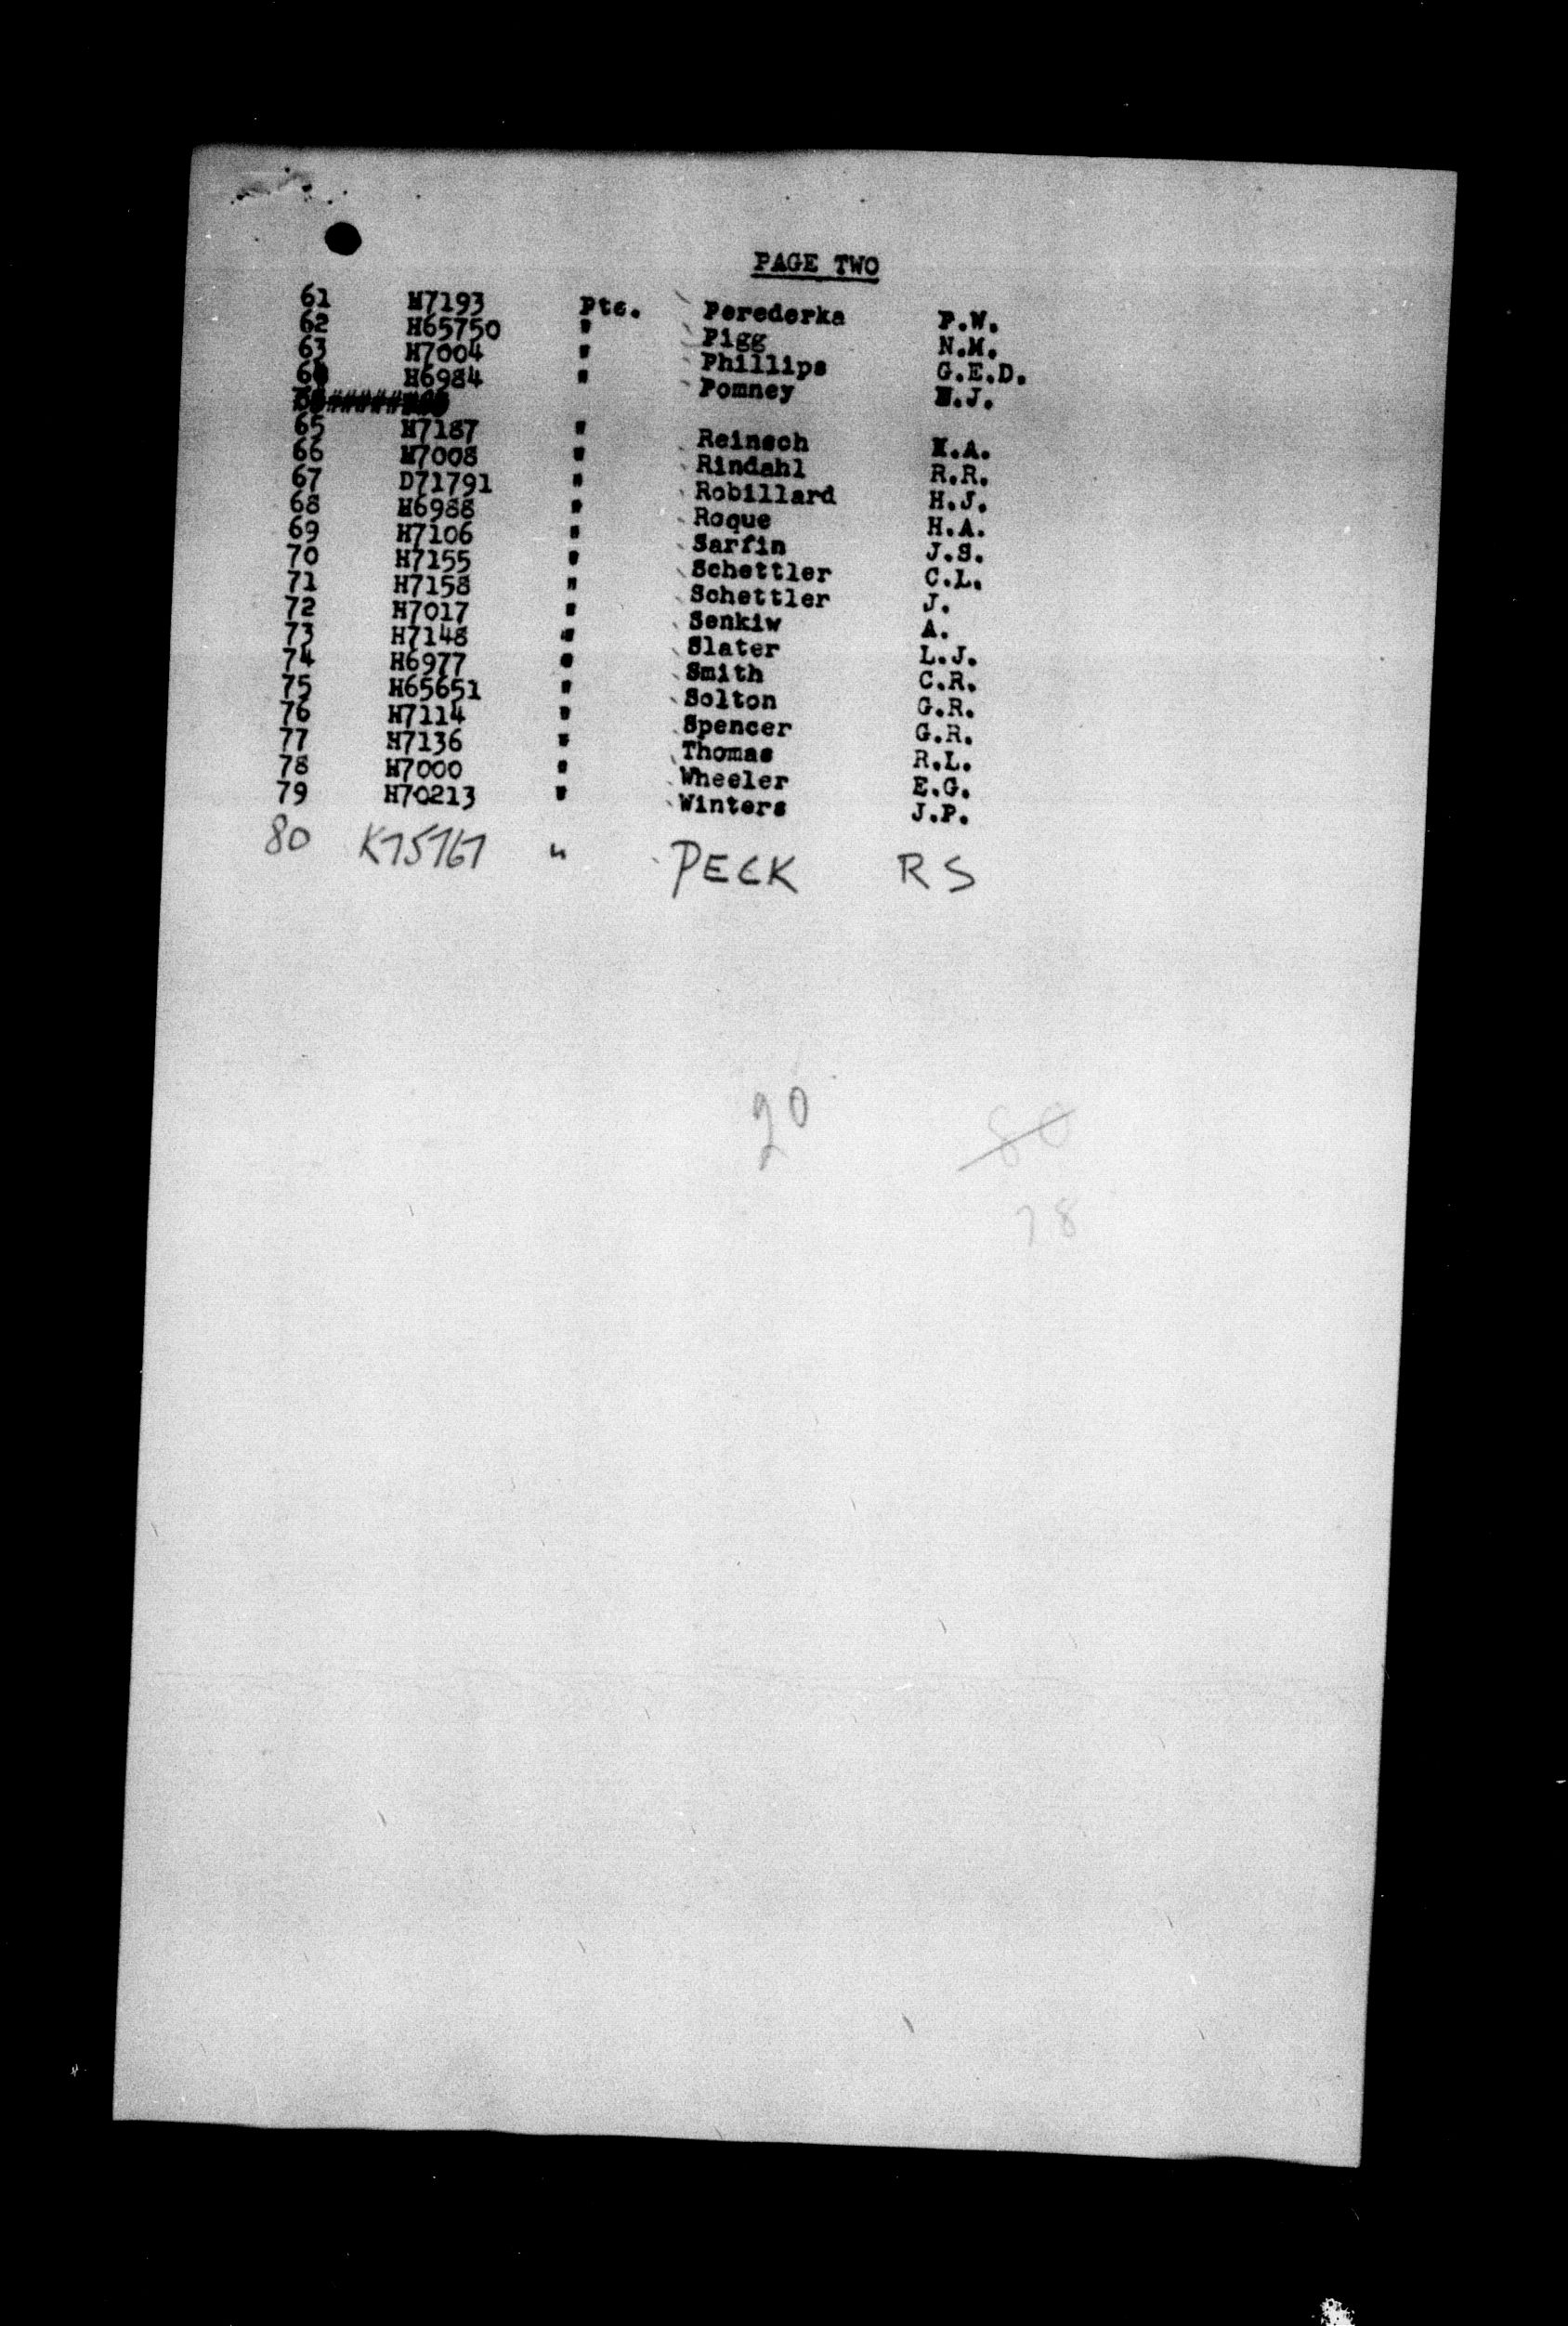 PAGE TWO
61 H7193 Pte. Perederka P.W.
62 H65750 " Pigg N.M.
63 H7004 " Phillips G.E.D.
64 H6984 " Pomney J.
65 H7187 " Reinsch A.
66 H7008 " Rindahl R.R.
67 D71791 " Robillard H.J.
68 H6988 " Roque H.A.
69 H7106 " Sarfin J.S.
70 H7155 " Schettler C.L.
71 H7158 " Schettler J.
72 H7017 " Senkiw A.
73 H7148 " Slater L.J.
74 H6977 " Smith C.R.
75 H65651 " Solton G.R.
76 H7114 " Spencer G.R.
77 H7136 " Thomas R.L.
78 H7000 " Wheeler E.G.
79 H70213 " Winters J.P.
80 K75767 " PECK R S
20 80
78